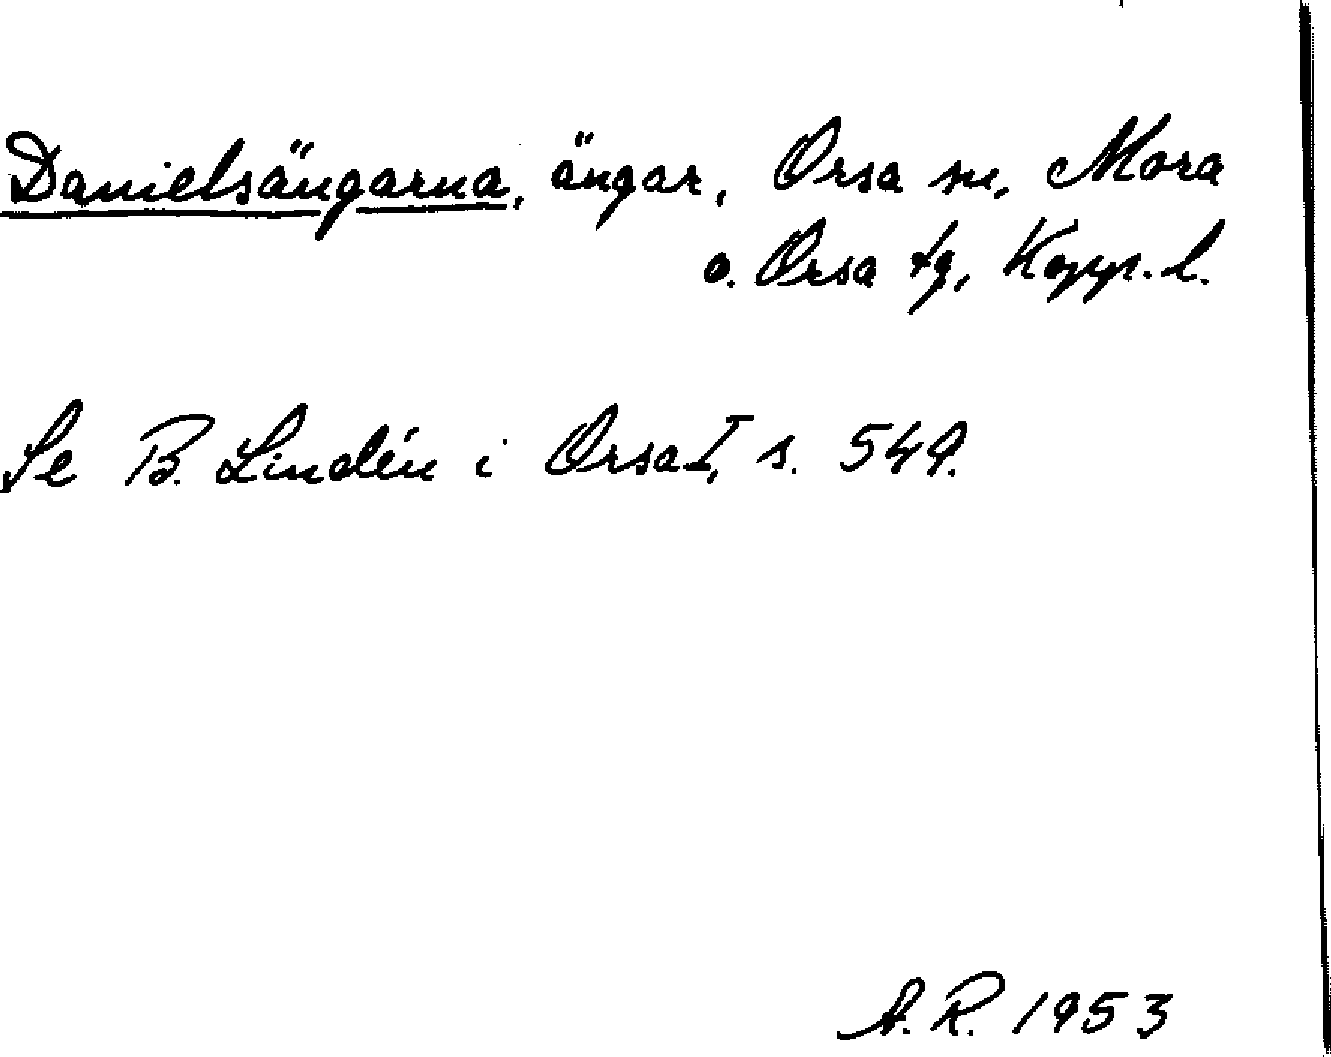 Danielsängarna, ängar, Orsa sn, Mora
o. Orsa tg, Kopp. l.
Se B. Lindén i Orsa I, s. 549.
A. R. 1953